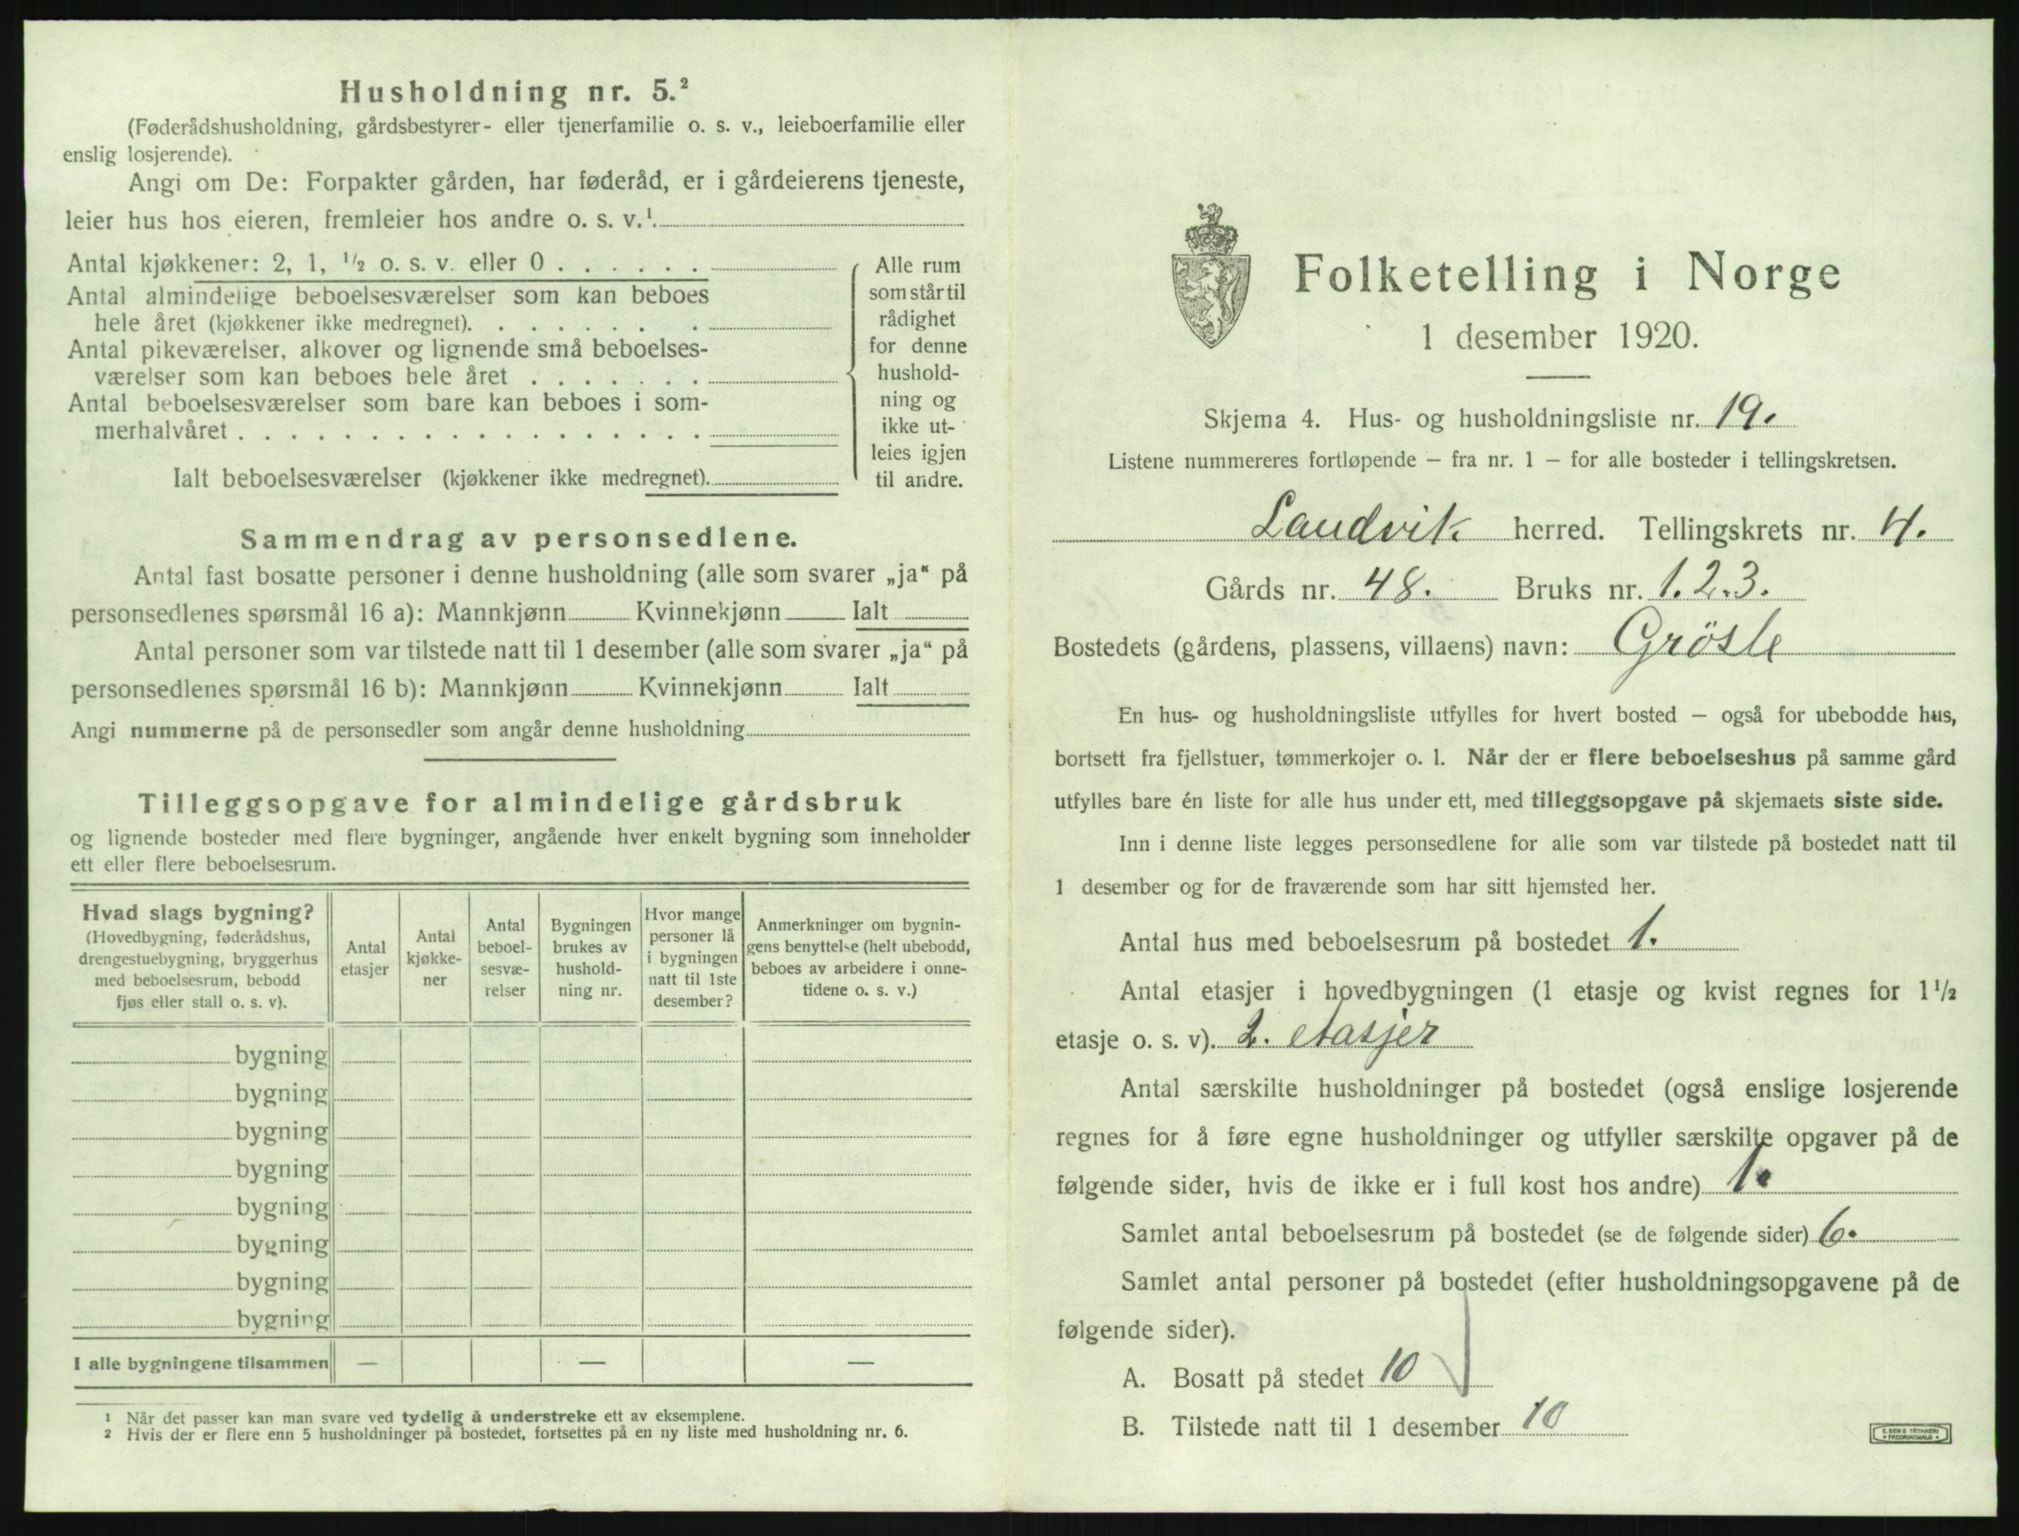 Husholdning nr. 5.²
(Føderådshusholdning, gårdsbestyrer- eller tjenerfamilie o. s. v., leieboerfamilie eller
enslig losjerende).
Angi om De: Forpakter gården, har føderåd, er i gårdeierens tjeneste,
leier hus hos eieren, fremleier hos andre o. s. v.¹
Antal kjøkkener: 2, 1, ½ o. s. v. eller 0 . . . . . .
Antal almindelige beboelsesværelser som kan beboes
hele året (kjøkkener ikke medregnet). . . . . . . .
Antal pikeværelser, alkover og lignende små beboelses-
værelser som kan beboes hele året . . . . . . .
Antal beboelsesværelser som bare kan beboes i som-
merhalvåret . . . . . . . . . . . . . . . . . .
Ialt beboelsesværelser (kjøkkener ikke medregnet).
Alle rum
som står til
rådighet
for denne
hushold-
ning og
ikke ut-
leies igjen
til andre.
Sammendrag av personsedlene.
Antal fast bosatte personer i denne husholdning (alle som svarer „ja“ på
personsedlenes spørsmål 16 a): Mannkjønn Kvinnekjønn Ialt
Antal personer som var tilstede natt til 1 desember (alle som svarer „ja“ på
personsedlenes spørsmål 16 b): Mannkjønn Kvinnekjønn Ialt
Angi nummerne på de personsedler som angår denne husholdning
Tilleggsopgave for almindelige gårdsbruk
og lignende bosteder med flere bygninger, angående hver enkelt bygning som inneholder
ett eller flere beboelsesrum.
Hvad slags bygning?
(Hovedbygning, føderådshus,
drengestuebygning, bryggerhus
med beboelsesrum, bebodd
fjøs eller stall o. s. v).
Antal
etasjer
Antal
kjøkke-
ner
Antal
beboel-
sesvæ-
relser
Bygningen
brukes av
hushold-
ning nr.
Hvor mange
personer lå
i bygningen
natt til 1ste
desember?
Anmerkninger om bygnin-
gens benyttelse (helt ubebodd,
beboes av arbeidere i onne-
tidene o. s. v.)
bygning
bygning
bygning
bygning
bygning
bygning
bygning
bygning
I alle bygningene tilsammen — — —
¹ Når det passer kan man svare ved tydelig å understreke ett av eksemplene.
² Hvis der er flere enn 5 husholdninger på bostedet, fortsettes på en ny liste med husholdning nr. 6.
Folketelling i Norge
1 desember 1920.
Skjema 4. Hus- og husholdningsliste nr. 19.
Listene nummereres fortløpende – fra nr. 1 – for alle bosteder i tellingskretsen.
Landvik herred. Tellingskrets nr. 4.
Gårds nr. 48. Bruks nr. 1.2.3.
Bostedets (gårdens, plassens, villaens) navn: Grösle
En hus- og husholdningsliste utfylles for hvert bosted – også for ubebodde hus,
bortsett fra fjellstuer, tømmerkojer o. l. Når der er flere beboelseshus på samme gård
utfylles bare én liste for alle hus under ett, med tilleggsopgave på skjemaets siste side.
Inn i denne liste legges personsedlene for alle som var tilstede på bostedet natt til
1 desember og for de fraværende som har sitt hjemsted her.
Antal hus med beboelsesrum på bostedet 1.
Antal etasjer i hovedbygningen (1 etasje og kvist regnes for 1½
etasje o. s. v). 2. etasjer
Antal særskilte husholdninger på bostedet (også enslige losjerende
regnes for å føre egne husholdninger og utfyller særskilte opgaver på de
følgende sider, hvis de ikke er i full kost hos andre) 1.
Samlet antal beboelsesrum på bostedet (se de følgende sider) 6.
Samlet antal personer på bostedet (efter husholdningsopgavene på de
følgende sider).
A. Bosatt på stedet 10
B. Tilstede natt til 1 desember 10